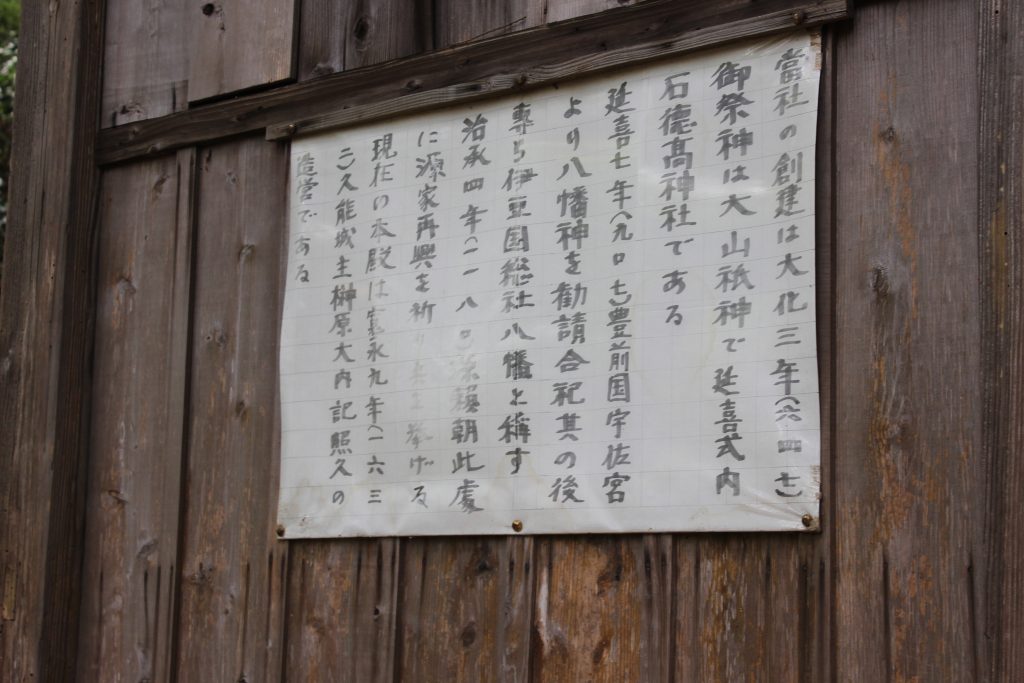 當社の創建は大化三年(六四七)
御祭神は大山祇神で延喜式内
石徳髙神社である
延喜七年(九〇七)豊前国宇佐宮
より八幡神を勧請合祀其の後
専ら伊豆国総社八幡と稱す
治承四年(一一八〇)源頼朝此處
に源家再興を祈り兵を挙げる
現在の本殿は寛永九年(一六三
二)久能城主榊原大内記照久の
造営である